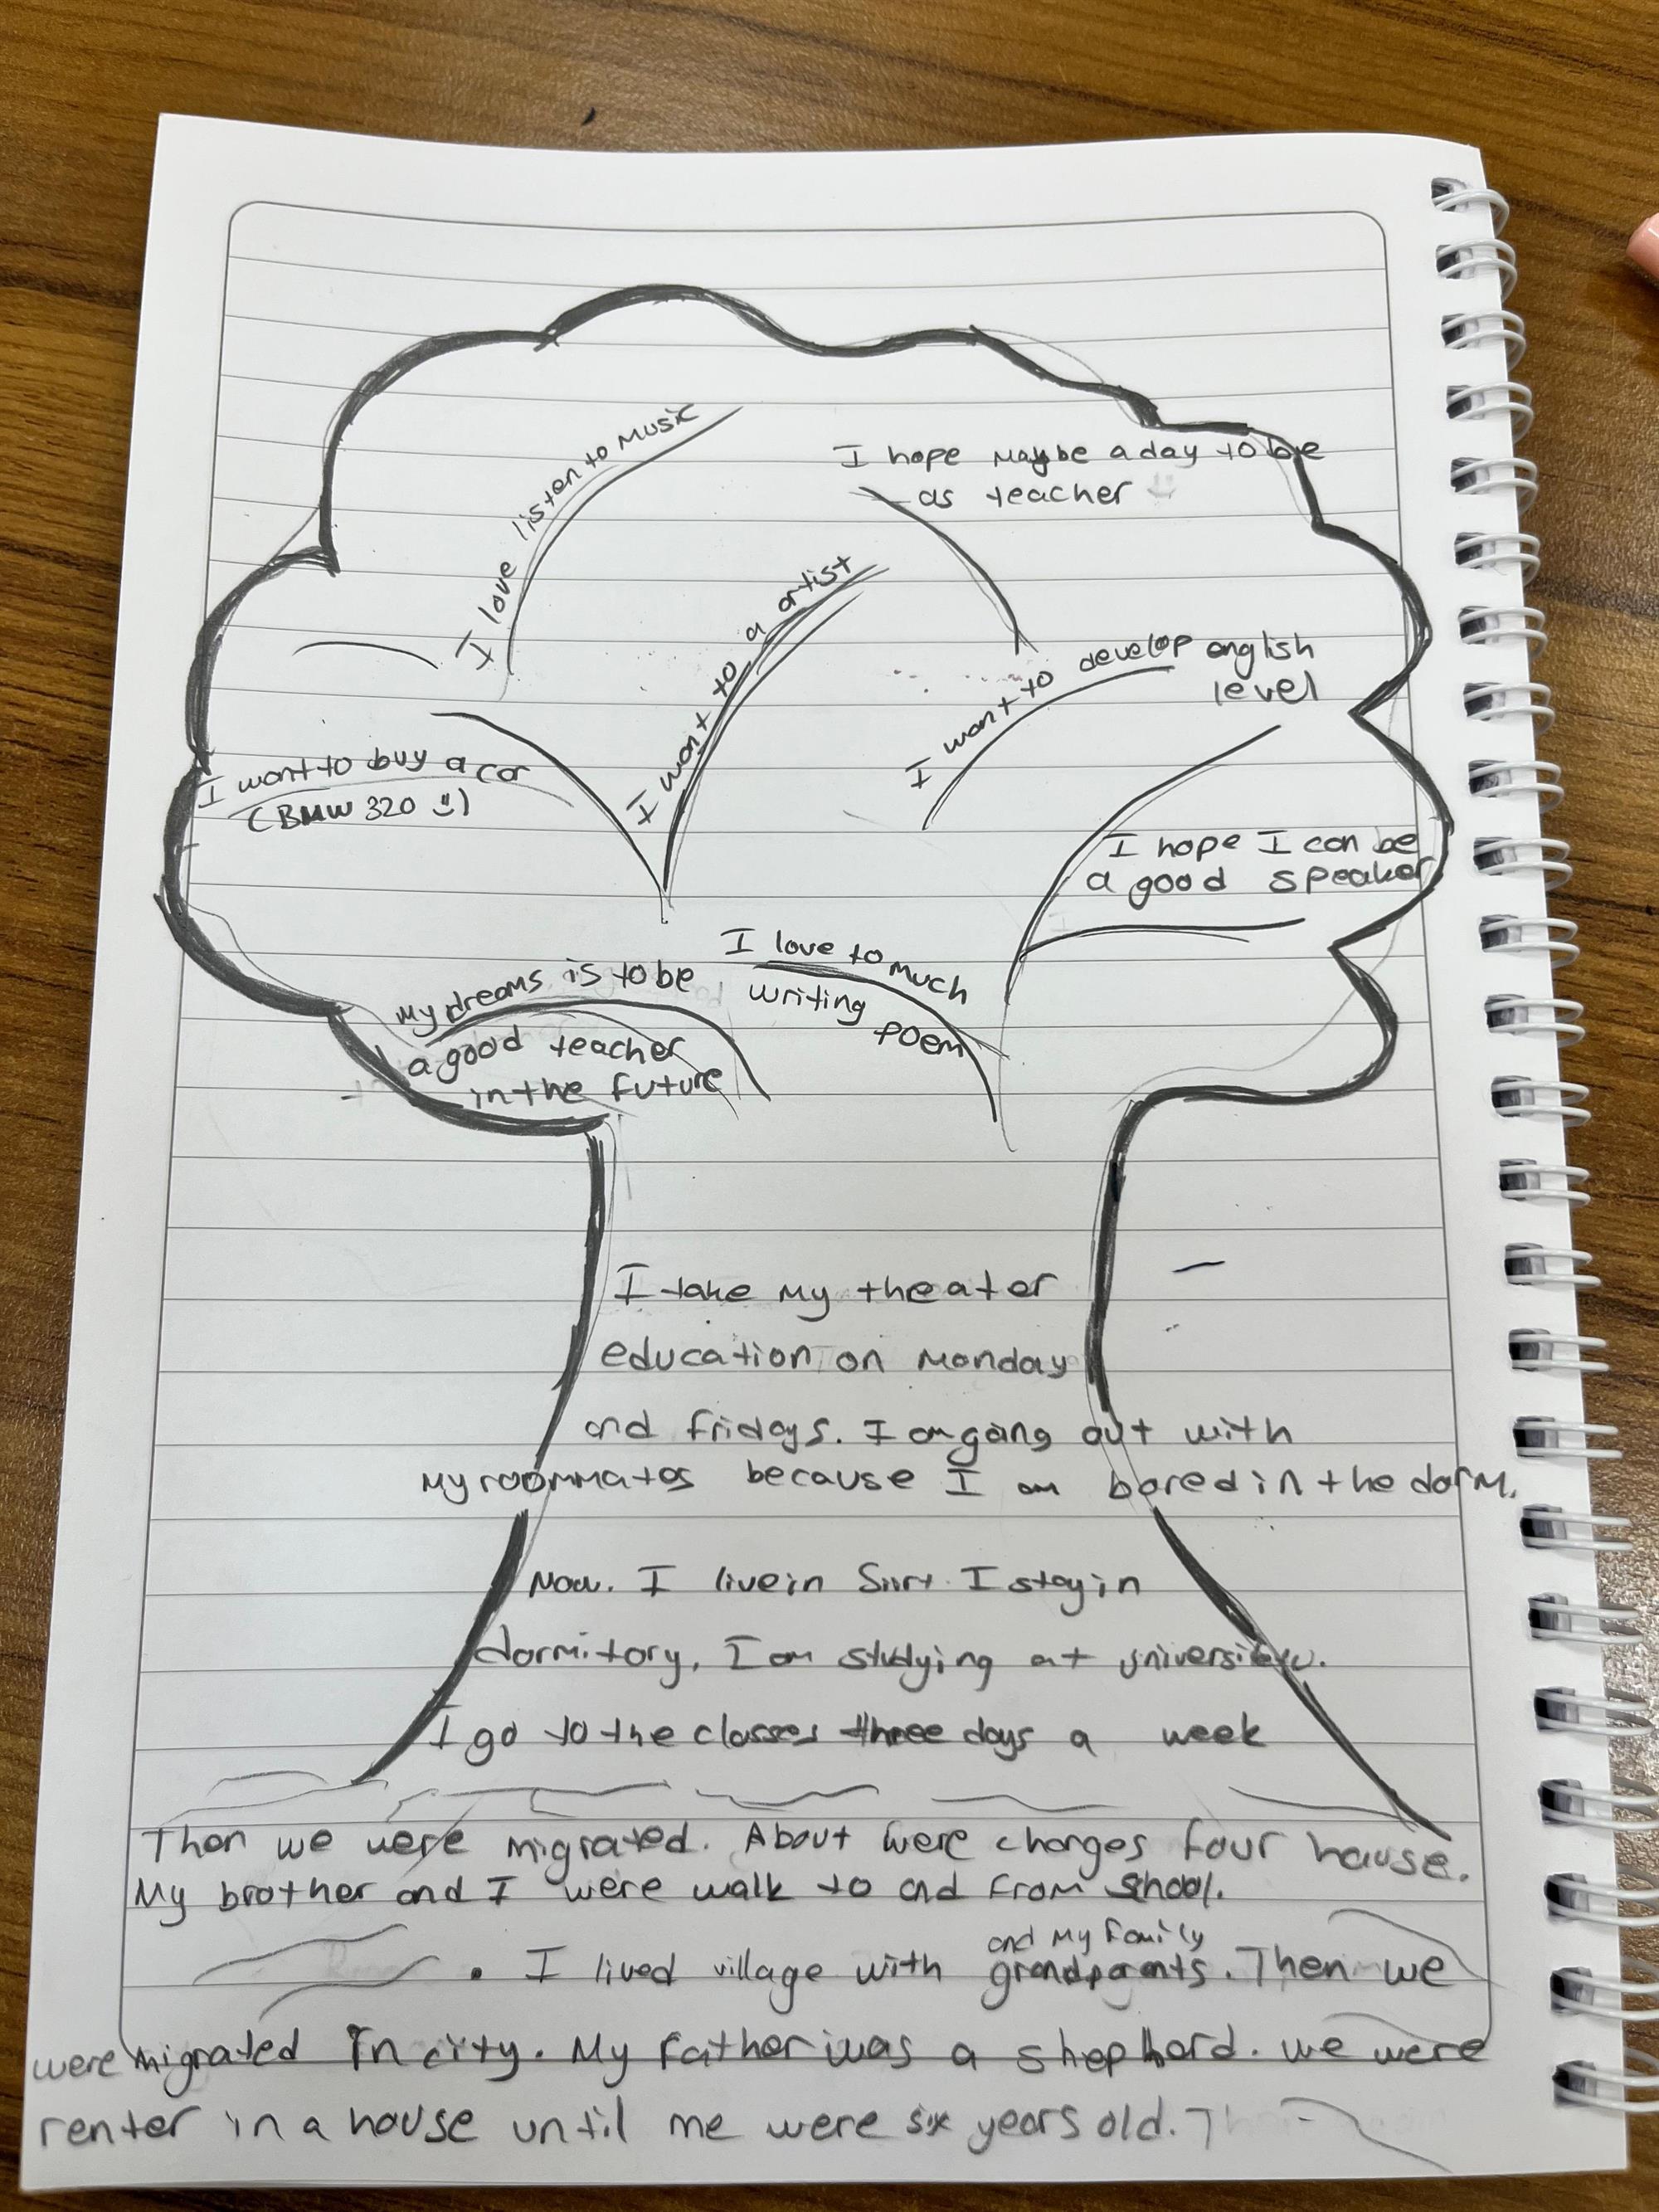 I love listen to Music
I hope Maybe a day to be
as teacher
I want to a artist
I want to develop english
level
I want to buy a car
(BMW 320 :))
I hope I can be
a good speaker
I love to much
writing poem
My dreams is to be
a good teacher
in the future
I take My theater
education on Monday
and fridays. I am going out with
My roommates because I am bored in the dorm.
Now. I live in Siirt. I stay in
dormitory, I am studying at university.
I go to the classes three days a week
Then we were migrated. About were changes four hause.
My brother and I were walk to and from school.
and My family
. I lived village with grandparents. Then we
were migrated in city. My father was a shepherd. we were
renter in a house until me were six years old.